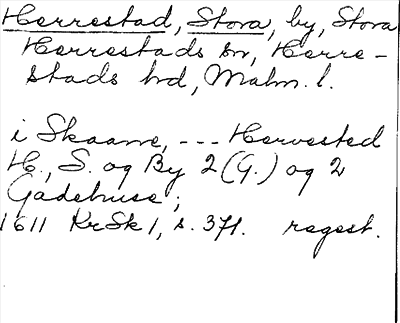 Herrestad, Stora, by, Stora
Herrestads sn, Herre-
stads hd, Malm. l.
i Skaane, --- Herrested
H., S. og By 2 (G.) og 2
Gadehuse;
1611 KrSk 1, s. 371. regest.